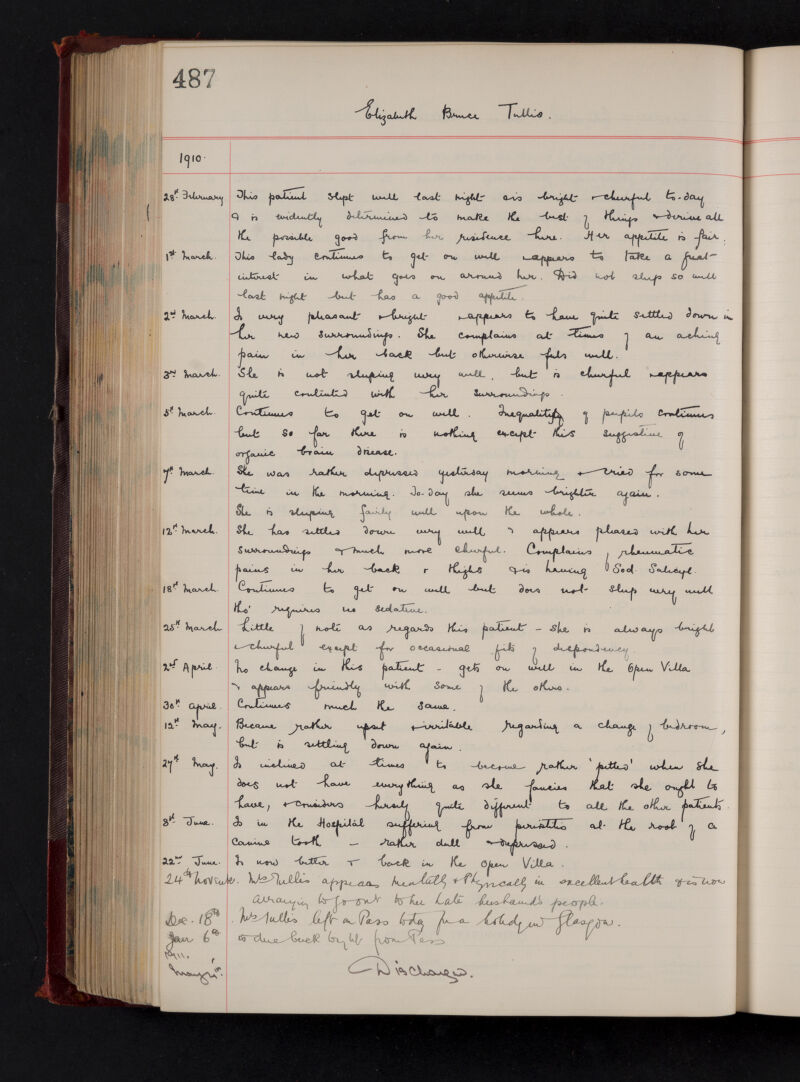 487
Elizabeth Bruce Tullis.
1910.
28th February This patient slept well last night & is bright & cheerful to-day
& is evidently determined to make the best of things & derive all
the possible good from her residence here. Her appetite is fair.
1st March. This lady continues to get on well & appears to take a great
interest in what goes on around her. Did not sleep so well
last night but has a good appetite.
2nd March. Is very pleasant & bright & appears to have quite settled down in
her new surroundings. She complains at times of an aching
pain in her back but otherwise feels well.
3rd March. She is not sleeping very well, but is cheerful & appears
quite contented with her surroundings.
5th March. Continues to get on well. Inequality of pupils continues
but so far there is nothing except this suggestive of
organic brain disease.
7th March. She was rather depressed yesterday morning & cried for some
time in the morning. To-day she seems brighter again.
She is sleeping fairly well upon the whole.
12th March. She has settled down very well & appears pleased with her
surroundings & much more cheerful. Complains of rheumatic
pains in her back & thighs & is having Sod. Salicyl.
18th March. Continues to get on well but does not sleep very well
tho' requires no sedative.
25th March Little of note as regards this patient - she is always bright
& cheerful except for occasional fits of despondency.
2nd April. No change in this patient - gets on well in the Open Villa
& appears friendly with some of the others.
30th April. Continues much the same.
12th May. Became rather upset & irritable regarding a change of bedroom,
but is settling down again.
27th May. Is inclined at times to become rather 'petted' when she
does not have everything as she fancies that she ought to
have, & considers herself quite different to all the other patients.
8th June. Is in the Hospital suffering from periostitis at the root of a
canine tooth - rather dull & depressed.
22nd June. Is now better & back in the Open Villa.
24th November. Mrs Tullis appears mentally & physically in excellent health & is now
arranging to go out to her late husband's people.
Dec. 18th. Mrs Tullis left on Pass today for a holiday in Glasgow.
Jan 6th is due back from Pass
1911.
May Discharged.